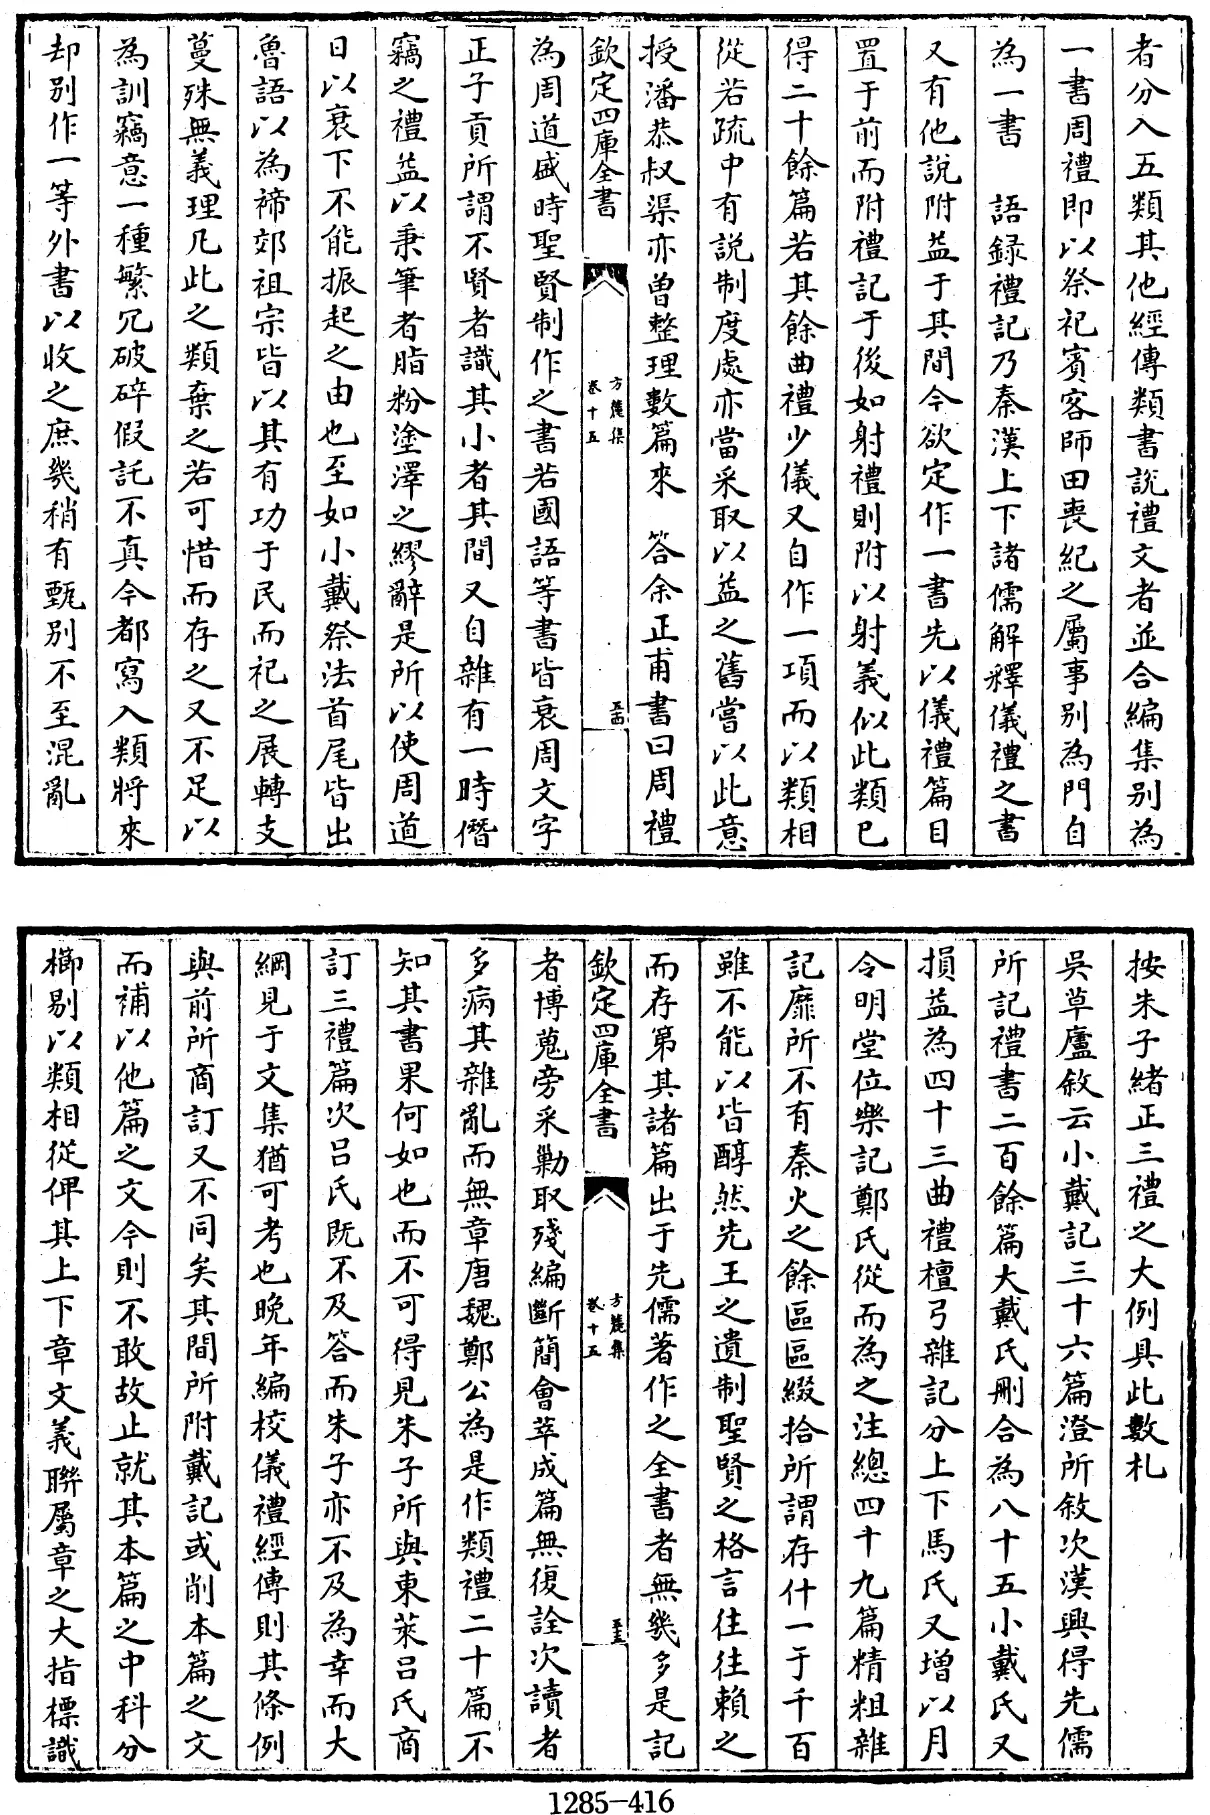 者分入五類其他經傳類書說禮文者並合編集别為
一書周禮即以祭祀賓客師田喪紀之屬事别為門自
為一書　語録禮記乃秦漢上下諸儒解釋儀禮之書
又有他説附益于其間今欲定作一書先以儀禮篇目
置于前而附禮記于後如射禮則附以射義似此類已
得二十餘篇若其餘曲禮少儀又自作一項而以類相
從若疏中有説制度處亦當采取以益之舊嘗以此意
授潘恭叔渠亦曾整理數篇來　答余正甫書曰周禮
欽定四庫全書
方麓集
卷十五
五十四
為周道盛時聖賢制作之書若國語等書皆衰周文字
正子貢所謂不賢者識其小者其間又自雜有一時僭
竊之禮益以秉筆者脂粉塗澤之繆辭是所以使周道
日以衰下不能振起之由也至如小戴祭法首尾皆出
魯語以為禘郊祖宗皆以其有功于民而祀之展轉支
蔓殊無義理凡此之類棄之若可惜而存之又不足以
為訓竊意一種繁冗破碎假託不真今都寫入類將來
却别作一等外書以收之庶幾稍有甄别不至混亂
按朱子緒正三禮之大例具此數札
吳草廬敘云小戴記三十六篇澄所敘次漢興得先儒
所記禮書二百餘篇大戴氏刪合為八十五小戴氏又
損益為四十三曲禮檀弓雜記分上下馬氏又增以月
令明堂位樂記鄭氏從而為之注總四十九篇精粗雜
記靡所不有秦火之餘區區綴拾所謂存什一于千百
雖不能以皆醇然先王之遺制聖賢之格言往往賴之
而存第其諸篇出于先儒著作之全書者無幾多是記
欽定四庫全書
方麓集
卷十五
五十五
者博蒐旁采勦取殘編斷簡會萃成篇無復詮次讀者
多病其雜亂而無章唐魏鄭公為是作類禮二十篇不
知其書果何如也而不可得見朱子所與東萊呂氏商
訂三禮篇次呂氏既不及答而朱子亦不及為幸而大
綱見于文集猶可考也晚年編校儀禮經傳則其條例
與前所商訂又不同矣其間所附戴記或削本篇之文
而補以他篇之文今則不敢故止就其本篇之中科分
櫛剔以類相從俾其上下章文義聯屬章之大指標識
1285-416